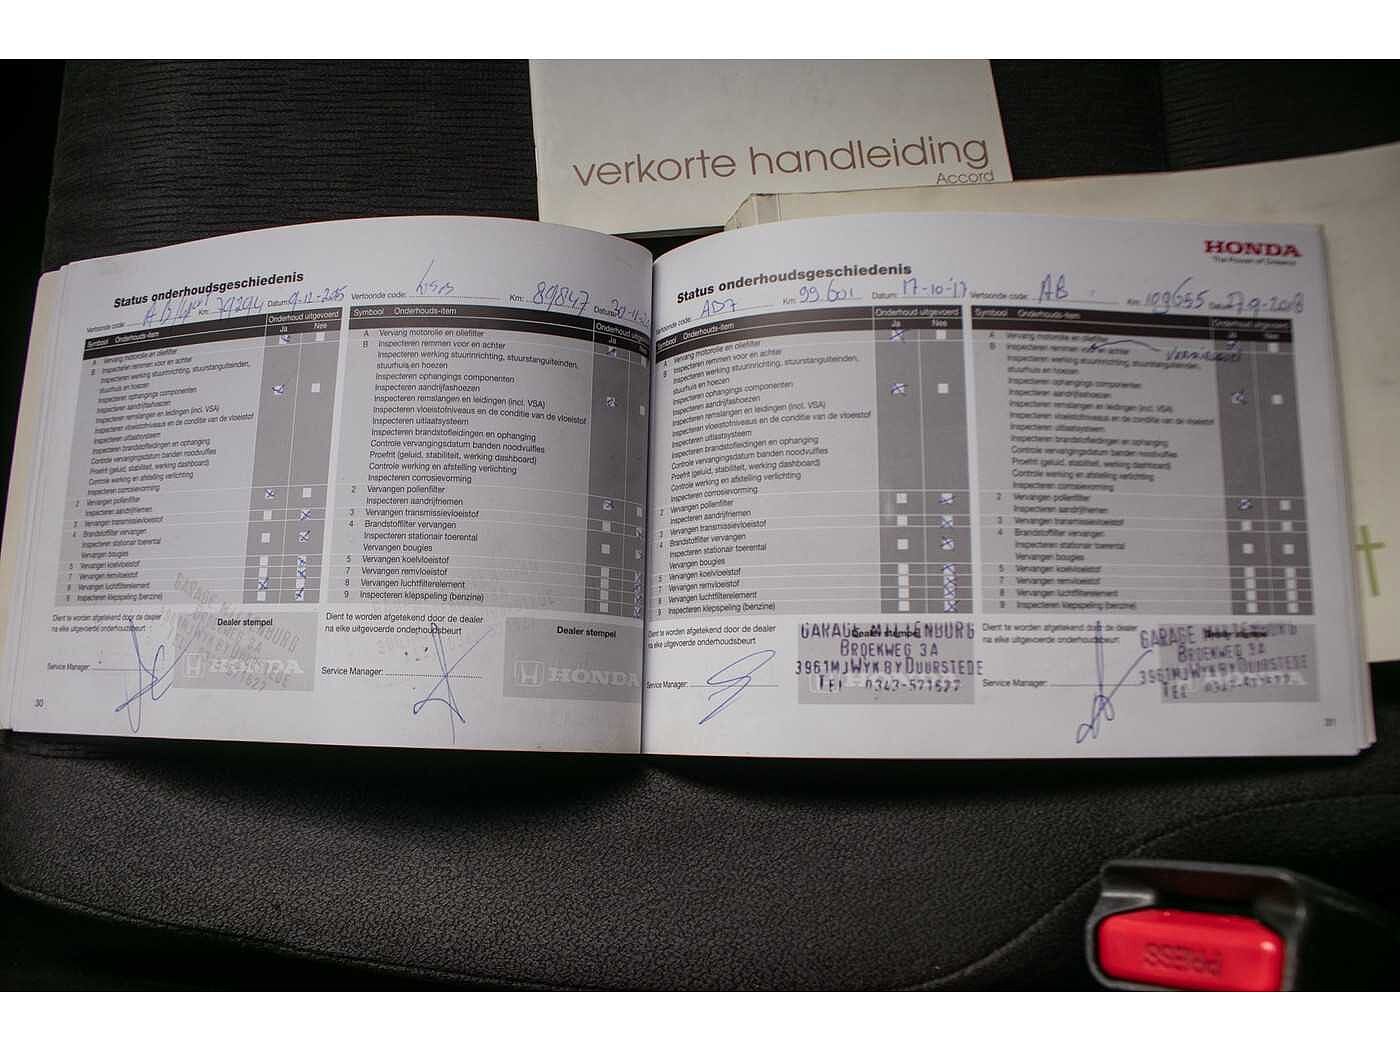 verkorte handleiding
Accord
HONDA
The Power of Dreams
Status onderhoudsgeschiedenis
Vertoonde code: Km: 79294 Datum:
Symbool Onderhouds-item Onderhoud uitgevoerd
Ja Nee
A Vervang motorolie en oliefilter
B Inspecteren remmen voor en achter
Inspecteren werking stuurinrichting, stuurstanguiteinden,
stuurhuis en hoezen
Inspecteren ophangings componenten
Inspecteren aandrijfashoezen
Inspecteren remslangen en leidingen (incl. VSA)
Inspecteren vloeistofniveaus en de conditie van de vloeistof
Inspecteren uitlaatsysteem
Inspecteren brandstofleidingen en ophanging
Controle vervangingsdatum banden noodvulfles
Proefrit (geluid, stabiliteit, werking dashboard)
Controle werking en afstelling verlichting
Inspecteren corrosievorming
2 Vervangen pollenfilter
Inspecteren aandrijfriemen
3 Vervangen transmissievloeistof
4 Brandstoffilter vervangen
Inspecteren stationair toerental
Vervangen bougies
5 Vervangen koelvloeistof
7 Vervangen remvloeistof
8 Vervangen luchtfilterelement
9 Inspecteren klepspeling (benzine)
Dient te worden afgetekend door de dealer
na elke uitgevoerde onderhoudsbeurt
Dealer stempel
HONDA
Service Manager:
30
Vertoonde code: Km: 89847 Datum:
Symbool Onderhouds-item Onderhoud
Ja
A Vervang motorolie en oliefilter
B Inspecteren remmen voor en achter
Inspecteren werking stuurinrichting, stuurstanguiteinden,
stuurhuis en hoezen
Inspecteren ophangings componenten
Inspecteren aandrijfashoezen
Inspecteren remslangen en leidingen (incl. VSA)
Inspecteren vloeistofniveaus en de conditie van de vloeistof
Inspecteren uitlaatsysteem
Inspecteren brandstofleidingen en ophanging
Controle vervangingsdatum banden noodvulfles
Proefrit (geluid, stabiliteit, werking dashboard)
Controle werking en afstelling verlichting
Inspecteren corrosievorming
2 Vervangen pollenfilter
Inspecteren aandrijfriemen
3 Vervangen transmissievloeistof
4 Brandstoffilter vervangen
Inspecteren stationair toerental
Vervangen bougies
5 Vervangen koelvloeistof
7 Vervangen remvloeistof
8 Vervangen luchtfilterelement
9 Inspecteren klepspeling (benzine)
Dient te worden afgetekend door de dealer
na elke uitgevoerde onderhoudsbeurt
Dealer stempel
HONDA
Service Manager:
Status onderhoudsgeschiedenis
Vertoonde code: Km: 99.601 Datum: 17-10-17
Symbool Onderhouds-item Onderhoud uitgevoerd
Ja Nee
A Vervang motorolie en oliefilter
B Inspecteren remmen voor en achter
Inspecteren werking stuurinrichting, stuurstanguiteinden,
stuurhuis en hoezen
Inspecteren ophangings componenten
Inspecteren aandrijfashoezen
Inspecteren remslangen en leidingen (incl. VSA)
Inspecteren vloeistofniveaus en de conditie van de vloeistof
Inspecteren uitlaatsysteem
Inspecteren brandstofleidingen en ophanging
Controle vervangingsdatum banden noodvulfles
Proefrit (geluid, stabiliteit, werking dashboard)
Controle werking en afstelling verlichting
Inspecteren corrosievorming
2 Vervangen pollenfilter
Inspecteren aandrijfriemen
3 Vervangen transmissievloeistof
4 Brandstoffilter vervangen
Inspecteren stationair toerental
Vervangen bougies
5 Vervangen koelvloeistof
7 Vervangen remvloeistof
8 Vervangen luchtfilterelement
9 Inspecteren klepspeling (benzine)
Dient te worden afgetekend door de dealer
na elke uitgevoerde onderhoudsbeurt
Dealer stempel
GARAGE MILTENBURG
BROEKWEG 3A
3961MJ WYK BY DUURSTEDE
TEL 0343-571627
Service Manager:
Vertoonde code: AB Km: 109655 Datum: 27-9-2018
Symbool Onderhouds-item Onderhoud uitgevoerd
A Vervang motorolie en oliefilter
B Inspecteren remmen voor en achter
Inspecteren werking stuurinrichting, stuurstanguiteinden,
stuurhuis en hoezen
Inspecteren ophangings componenten
Inspecteren aandrijfashoezen
Inspecteren remslangen en leidingen (incl. VSA)
Inspecteren vloeistofniveaus en de conditie van de vloeistof
Inspecteren uitlaatsysteem
Inspecteren brandstofleidingen en ophanging
Controle vervangingsdatum banden noodvulfles
Proefrit (geluid, stabiliteit, werking dashboard)
Controle werking en afstelling verlichting
Inspecteren corrosievorming
2 Vervangen pollenfilter
Inspecteren aandrijfriemen
3 Vervangen transmissievloeistof
4 Brandstoffilter vervangen
Inspecteren stationair toerental
Vervangen bougies
5 Vervangen koelvloeistof
7 Vervangen remvloeistof
8 Vervangen luchtfilterelement
9 Inspecteren klepspeling (benzine)
Dient te worden afgetekend door de dealer
na elke uitgevoerde onderhoudsbeurt
GARAGE MILTENBURG
BROEKWEG 3A
3961MJ WYK BY DUURSTEDE
TEL 0343-571627
Service Manager:
31
PRESS